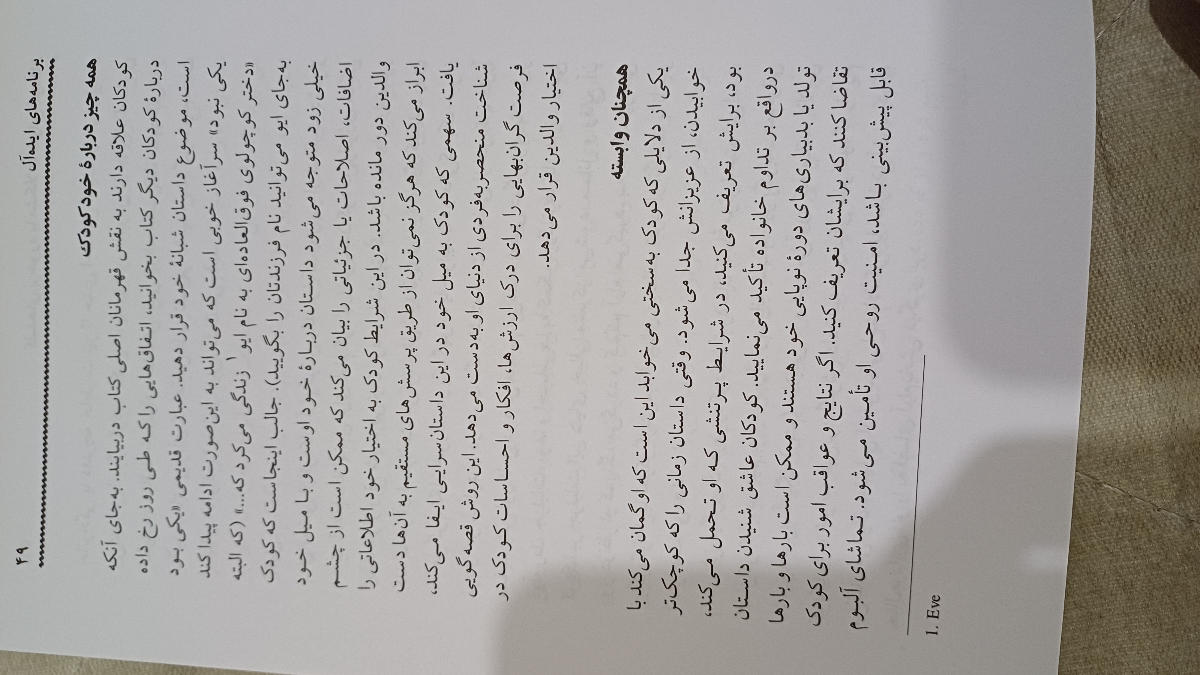 برنامه‌های ایده‌آل ۴۹
همه چیز دربارهٔ خود کودک
کودکان علاقه دارند به نقش قهرمانان اصلی کتاب دربیایند. به‌جای آنکه
دربارهٔ کودکان دیگر کتاب بخوانید، اتفاق‌هایی را که طی روز رخ داده
است، موضوع داستان شبانهٔ خود قرار دهید. عبارت قدیمی «یکی بود
یکی نبود» سرآغاز خوبی است که می‌تواند به این‌صورت ادامه پیدا کند
«دختر کوچولوی فوق‌العاده‌ای به نام ایو۱ زندگی می‌کرد که...» (که البته
به‌جای ایو می‌توانید نام فرزندتان را بگویید). جالب اینجاست که کودک
خیلی زود متوجه می‌شود داستان دربارهٔ خود اوست و با میل خود
اضافات، اصلاحات یا جزئیاتی را بیان می‌کند که ممکن است از چشم
والدین دور مانده باشد. در این شرایط کودک به اختیار خود اطلاعاتی را
ابراز می‌کند که هرگز نمی‌توان از طریق پرسش‌های مستقیم به آن‌ها دست
یافت. سهمی که کودک به میل خود در این داستان‌سرایی ایفا می‌کند،
شناخت منحصربه‌فردی از دنیای او به‌دست می‌دهد. این روش قصه‌گویی
فرصت گران‌بهایی را برای درک ارزش‌ها، افکار و احساسات کودک در
اختیار والدین قرار می‌دهد.
همچنان وابسته
یکی از دلایلی که کودک به‌سختی می‌خوابد این است که او گمان می‌کند با
خوابیدن، از عزیزانش جدا می‌شود. وقتی داستان زمانی را که کوچک‌تر
بود، برایش تعریف می‌کنید، در شرایط پرتنشی که او تحمل می‌کند،
درواقع بر تداوم خانواده تأکید می‌نمایید. کودکان عاشق شنیدن داستان
تولد یا بدبیاری‌های دورهٔ نوپایی خود هستند و ممکن است بارها و بارها
تقاضا کنند که برایشان تعریف کنید. اگر نتایج و عواقب امور برای کودک
قابل پیش‌بینی باشد، امنیت روحی او تأمین می‌شود. تماشای آلبوم
1. Eve